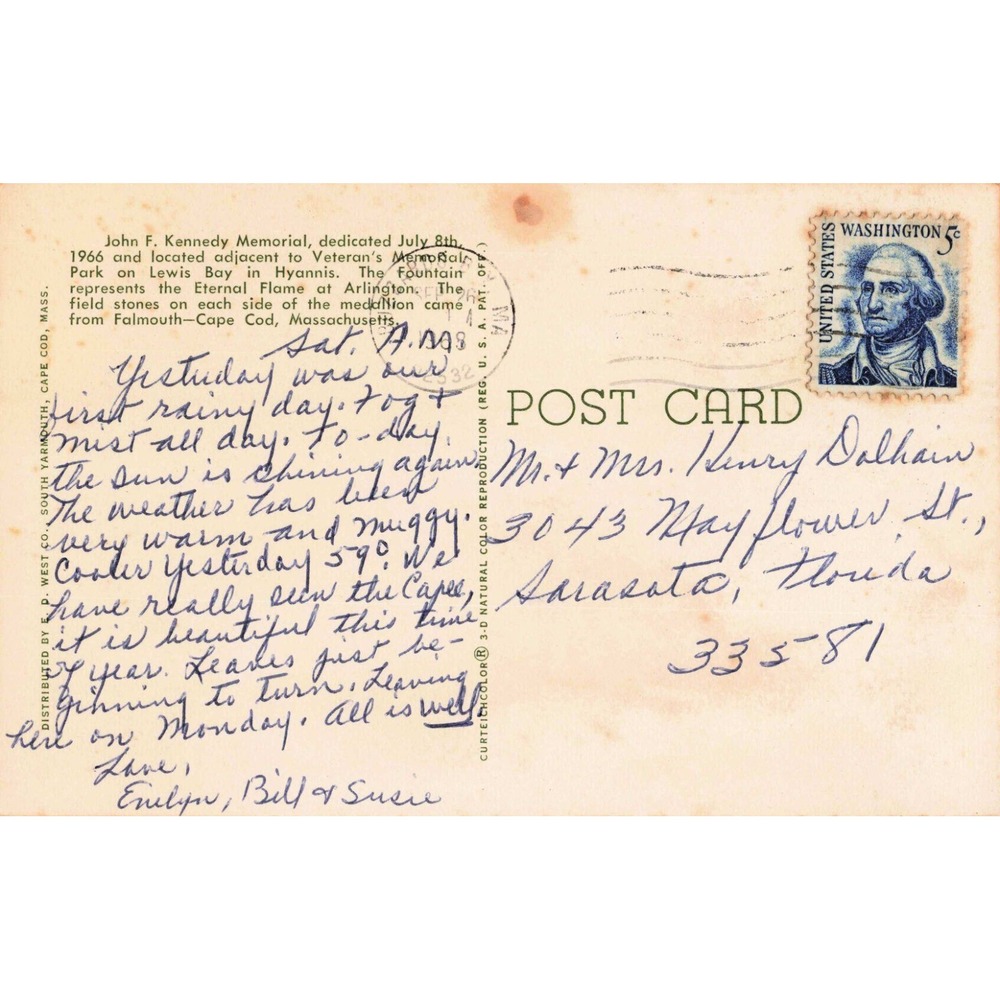 John F. Kennedy Memorial, dedicated July 8th,
1966 and located adjacent to Veteran's Memorial
Park on Lewis Bay in Hyannis. The Fountain
represents the Eternal Flame at Arlington. The
field stones on each side of the medallion came
from Falmouth—Cape Cod, Massachusetts.
Sat. A.M.
Yesterday was our
first rainy day. Fog +
mist all day. To-day
the sun is shining again.
The weather has been
very warm and muggy.
Cooler Yesterday 59°. We
have really seen the Cape,
it is beautiful this time
of year. Leaves just be-
ginning to turn. Leaving
here on Monday. All is well.
Love,
Evelyn, Bill & Susie
DISTRIBUTED BY E. D. WEST CO., SOUTH YARMOUTH, CAPE COD, MASS.
CURTEICHCOLOR® 3-D NATURAL COLOR REPRODUCTION (REG. U. S. A. PAT. OFF.)
SEP 26
MA
UNITED STATES
WASHINGTON 5c
POST CARD
Mr. + Mrs. Henry Dalhain
3043 Mayflower St.,
Sarasota, Florida
33581